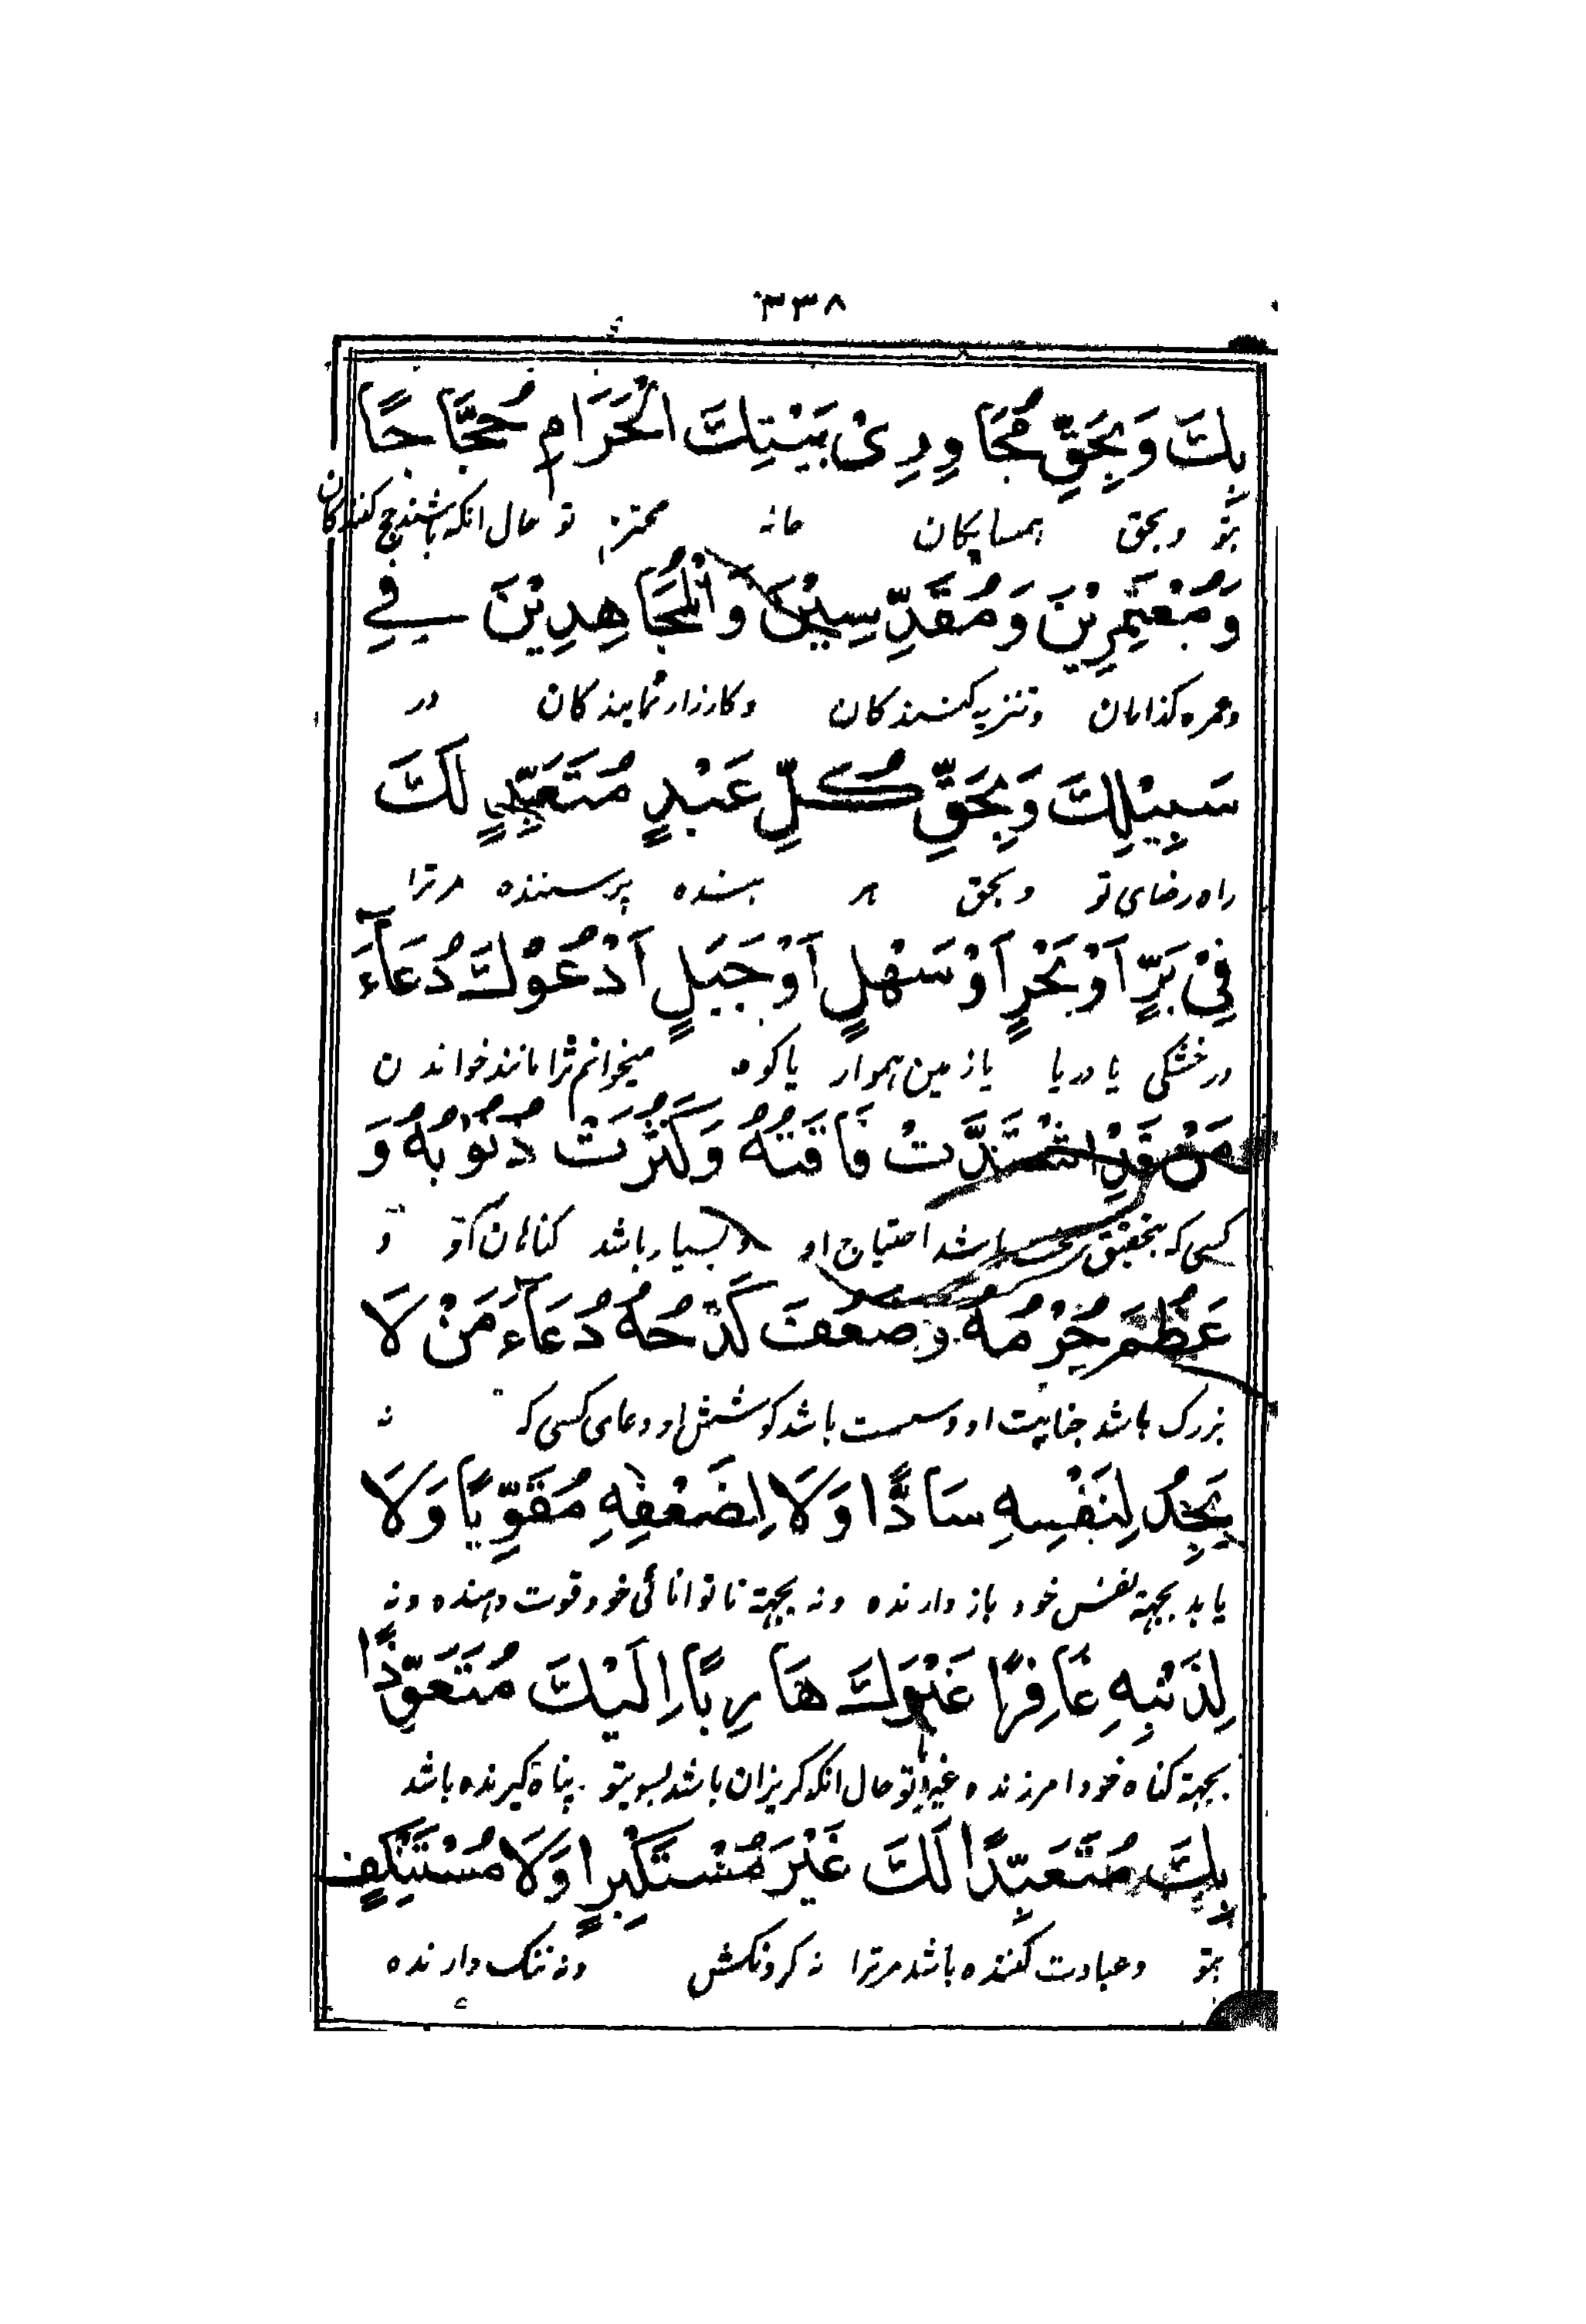 ۳۳۸
بِكَ وَبِحَقِّ مُجَاوِرِيْ بَيْتِكَ الْحَرَامِ حُجَّاجًا
بتو وبحق همسایکان خانه محترم تو حال انکه باشند حج کنندکان
وَمُعْتَمِرِيْنَ وَمُقَدِّسِيْنَ وَالْمُجَاهِدِيْنَ فِي
وعمره کذاران وتنزیه کنندکان وکارزار نمایندکان در
سَبِيْلِكَ وَبِحَقِّ كُلِّ عَبْدٍ مُتَعَبِّدٍ لَكَ
راه رضای تو وبحق هر بنده پرستنده مرترا
فِيْ بَرٍّ اَوْ بَحْرٍ اَوْ سَهْلٍ اَوْ جَبَلٍ اَدْعُوْكَ دُعَآءَ
در خشکی یا دریا یا زمین هموار یا کوه میخوانم ترا مانند خواندن
مَنْ قَدِ اشْتَدَّتْ فَاقَتُهُ وَكَثُرَتْ ذُنُوْبُهُ وَ
کسی که بتحقیق سخت باشد احتیاج او و بسیار باشد کناهان او و
عَظُمَ جُرْمُهُ وَضَعُفَ كَدْحُهُ دُعَآءَ مَنْ لَا
بزرک باشد جنایت او وسست باشد کوشش او دعای کسی که نه
يَجِدُ لِنَفْسِهِ سَادًّا وَلَا لِضَعْفِهِ مُقَوِّيًا وَلَا
یابد بجهة نفس خود باز دارنده ونه بجهة ناتوانائی خود قوت دهنده ونه
لِذَنْبِهِ غَافِرًا غَيْرَكَ هَارِبًا اِلَيْكَ مُتَعَوِّذًا
بجهة کناه خود امرزنده غیر تو حال انکه کریزان باشد بسویتو پناه کیرنده باشد
بِكَ مُتَعَبِّدًا لَكَ غَيْرَ مُسْتَكْبِرٍ وَلَا مُسْتَنْكِفٍ
بتو وعبادت کننده باشد مرترا نه کردنکش ونه ننک دارنده